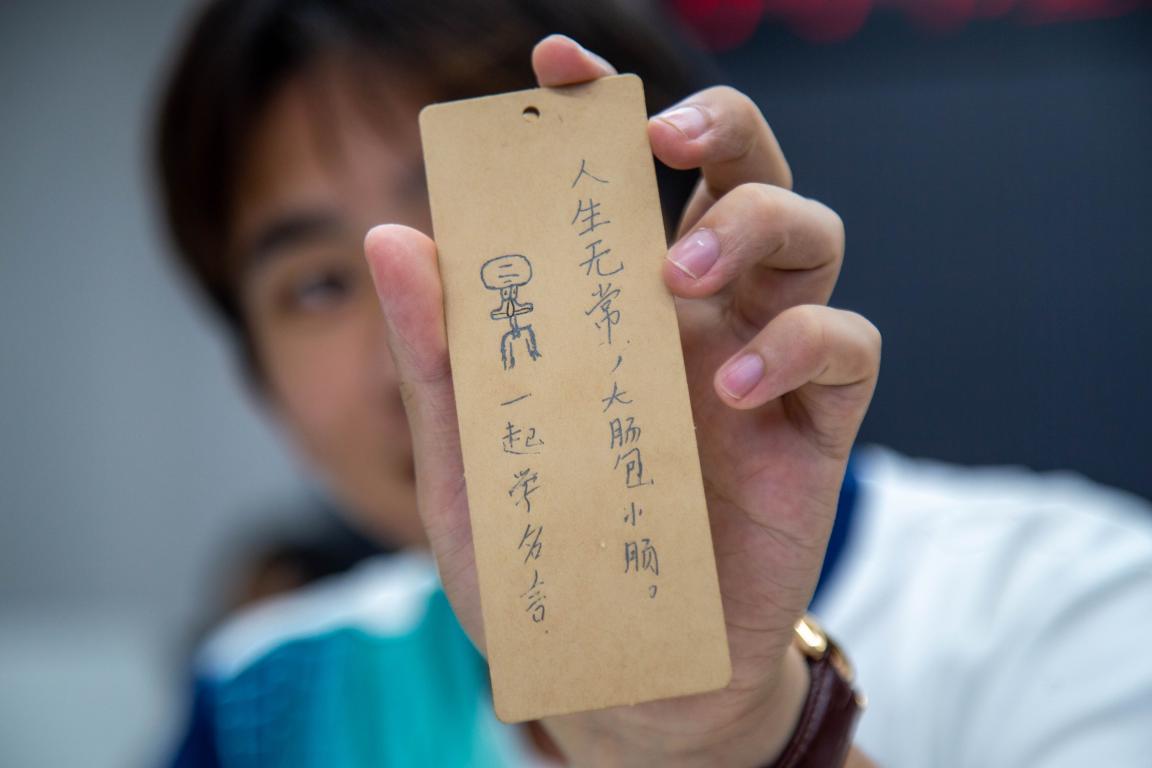 人生无常，大肠包小肠。
一起学名言